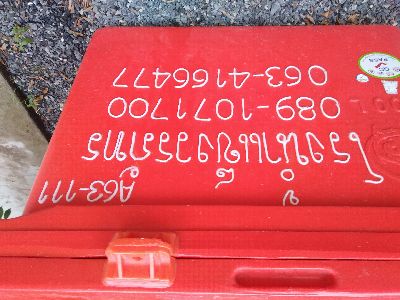 A63-111
โรงน้ำแข็งวรภัทร
089-1071700
063-4166477